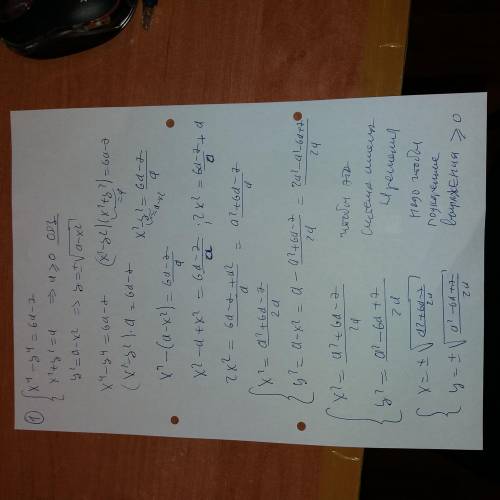 ① { x⁴-y⁴=6a-7
x²+y²=a ⇒ a≥0 ОДЗ
y²=a-x² ⇒ y=±√(a-x²)
x⁴-y⁴=6a-7 (x²-y²)(x²+y²)=6a-7
=a
(x²-y²)·a=6a-7 x²-y²=(6a-7)/a
=a-x²
x²-(a-x²)=(6a-7)/a
x²-a+x²=(6a-7)/a ; 2x²=(6a-7)/a+a
2x²=(6a-7+a²)/a=(a²+6a-7)/a
{ x²=(a²+6a-7)/2a
y²=a-x²=a-(a²+6a-7)/2a=(2a²-a²-6a+7)/2a
{ x²=(a²+6a-7)/2a
y²=(a²-6a+7)/2a
чтобы эта
система имела
4 решения
{ x=±√((a²+6a-7)/2a)
y=±√((a²-6a+7)/2a)
надо чтобы
подкоренные
выражения ≥0